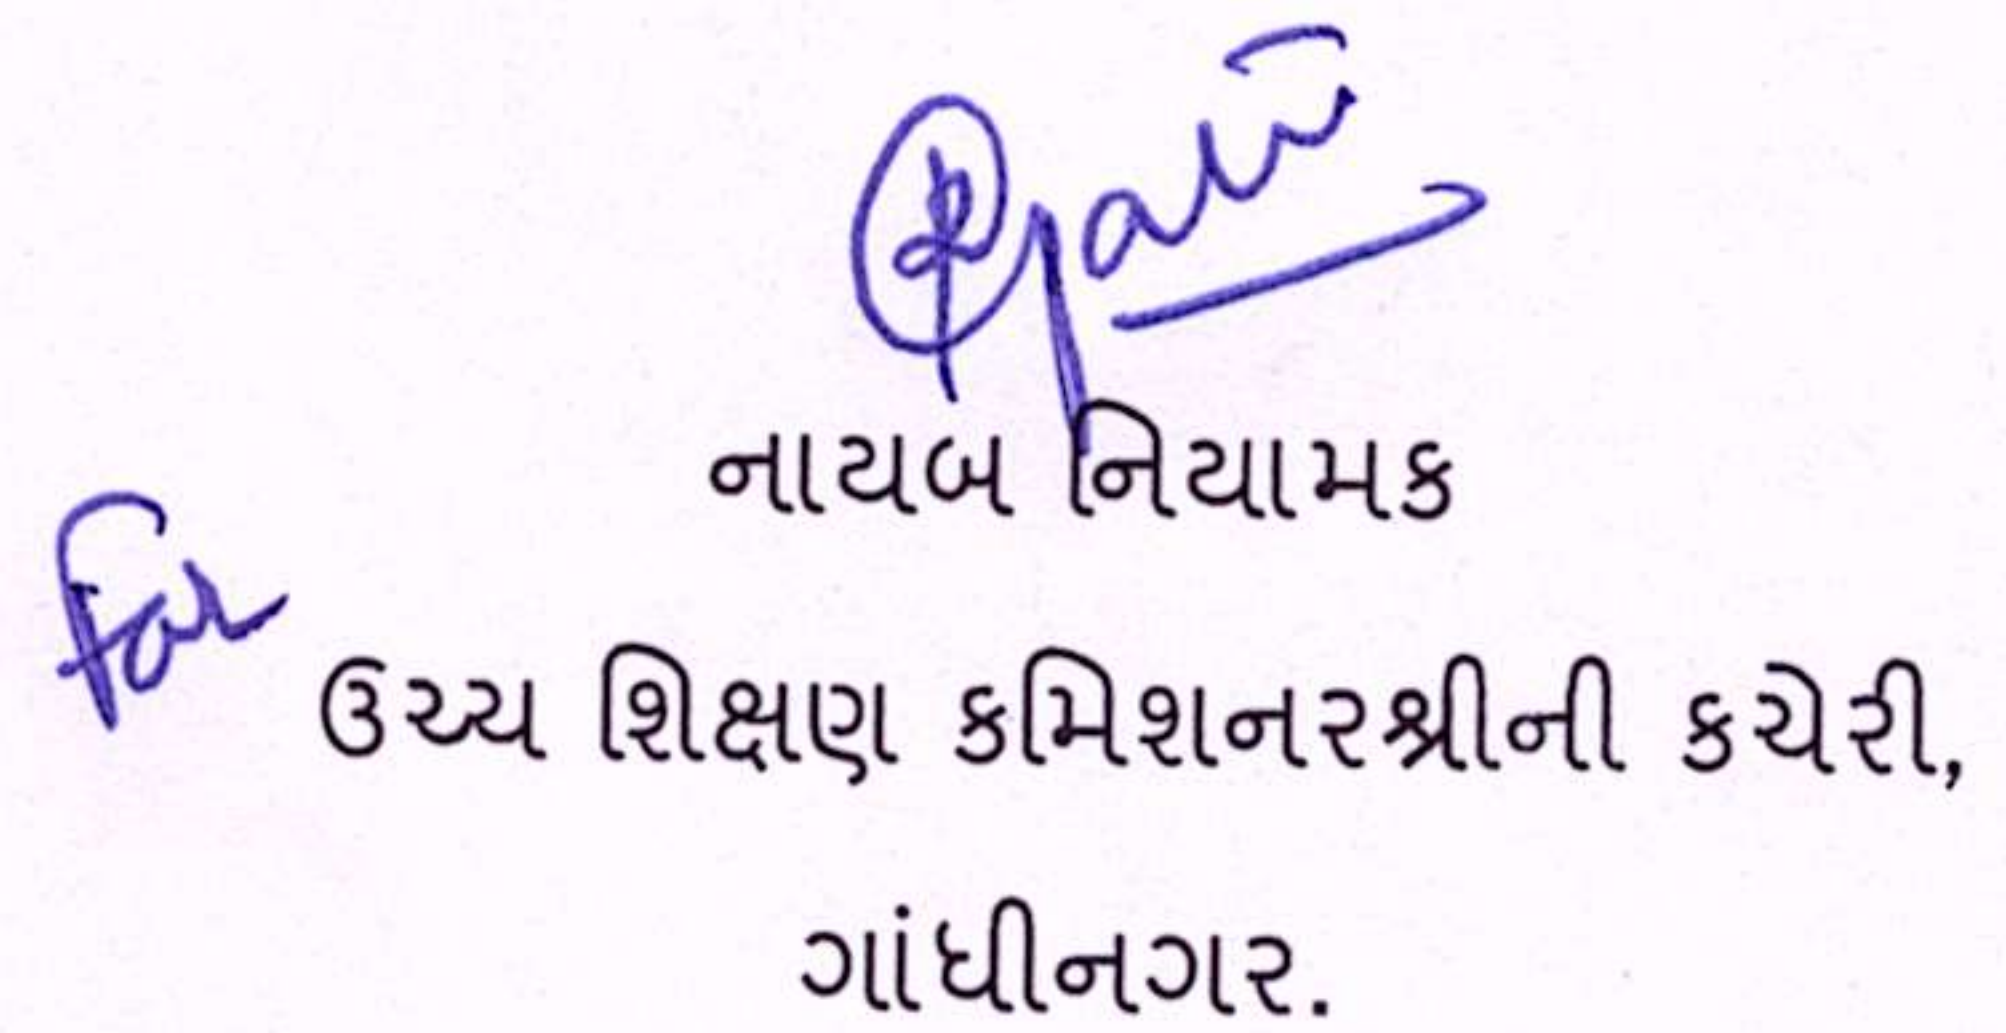 નાયબ નિયામક
For
ઉચ્ચ શિક્ષણ કમિશનરશ્રીની કચેરી,
ગાંધીનગર.